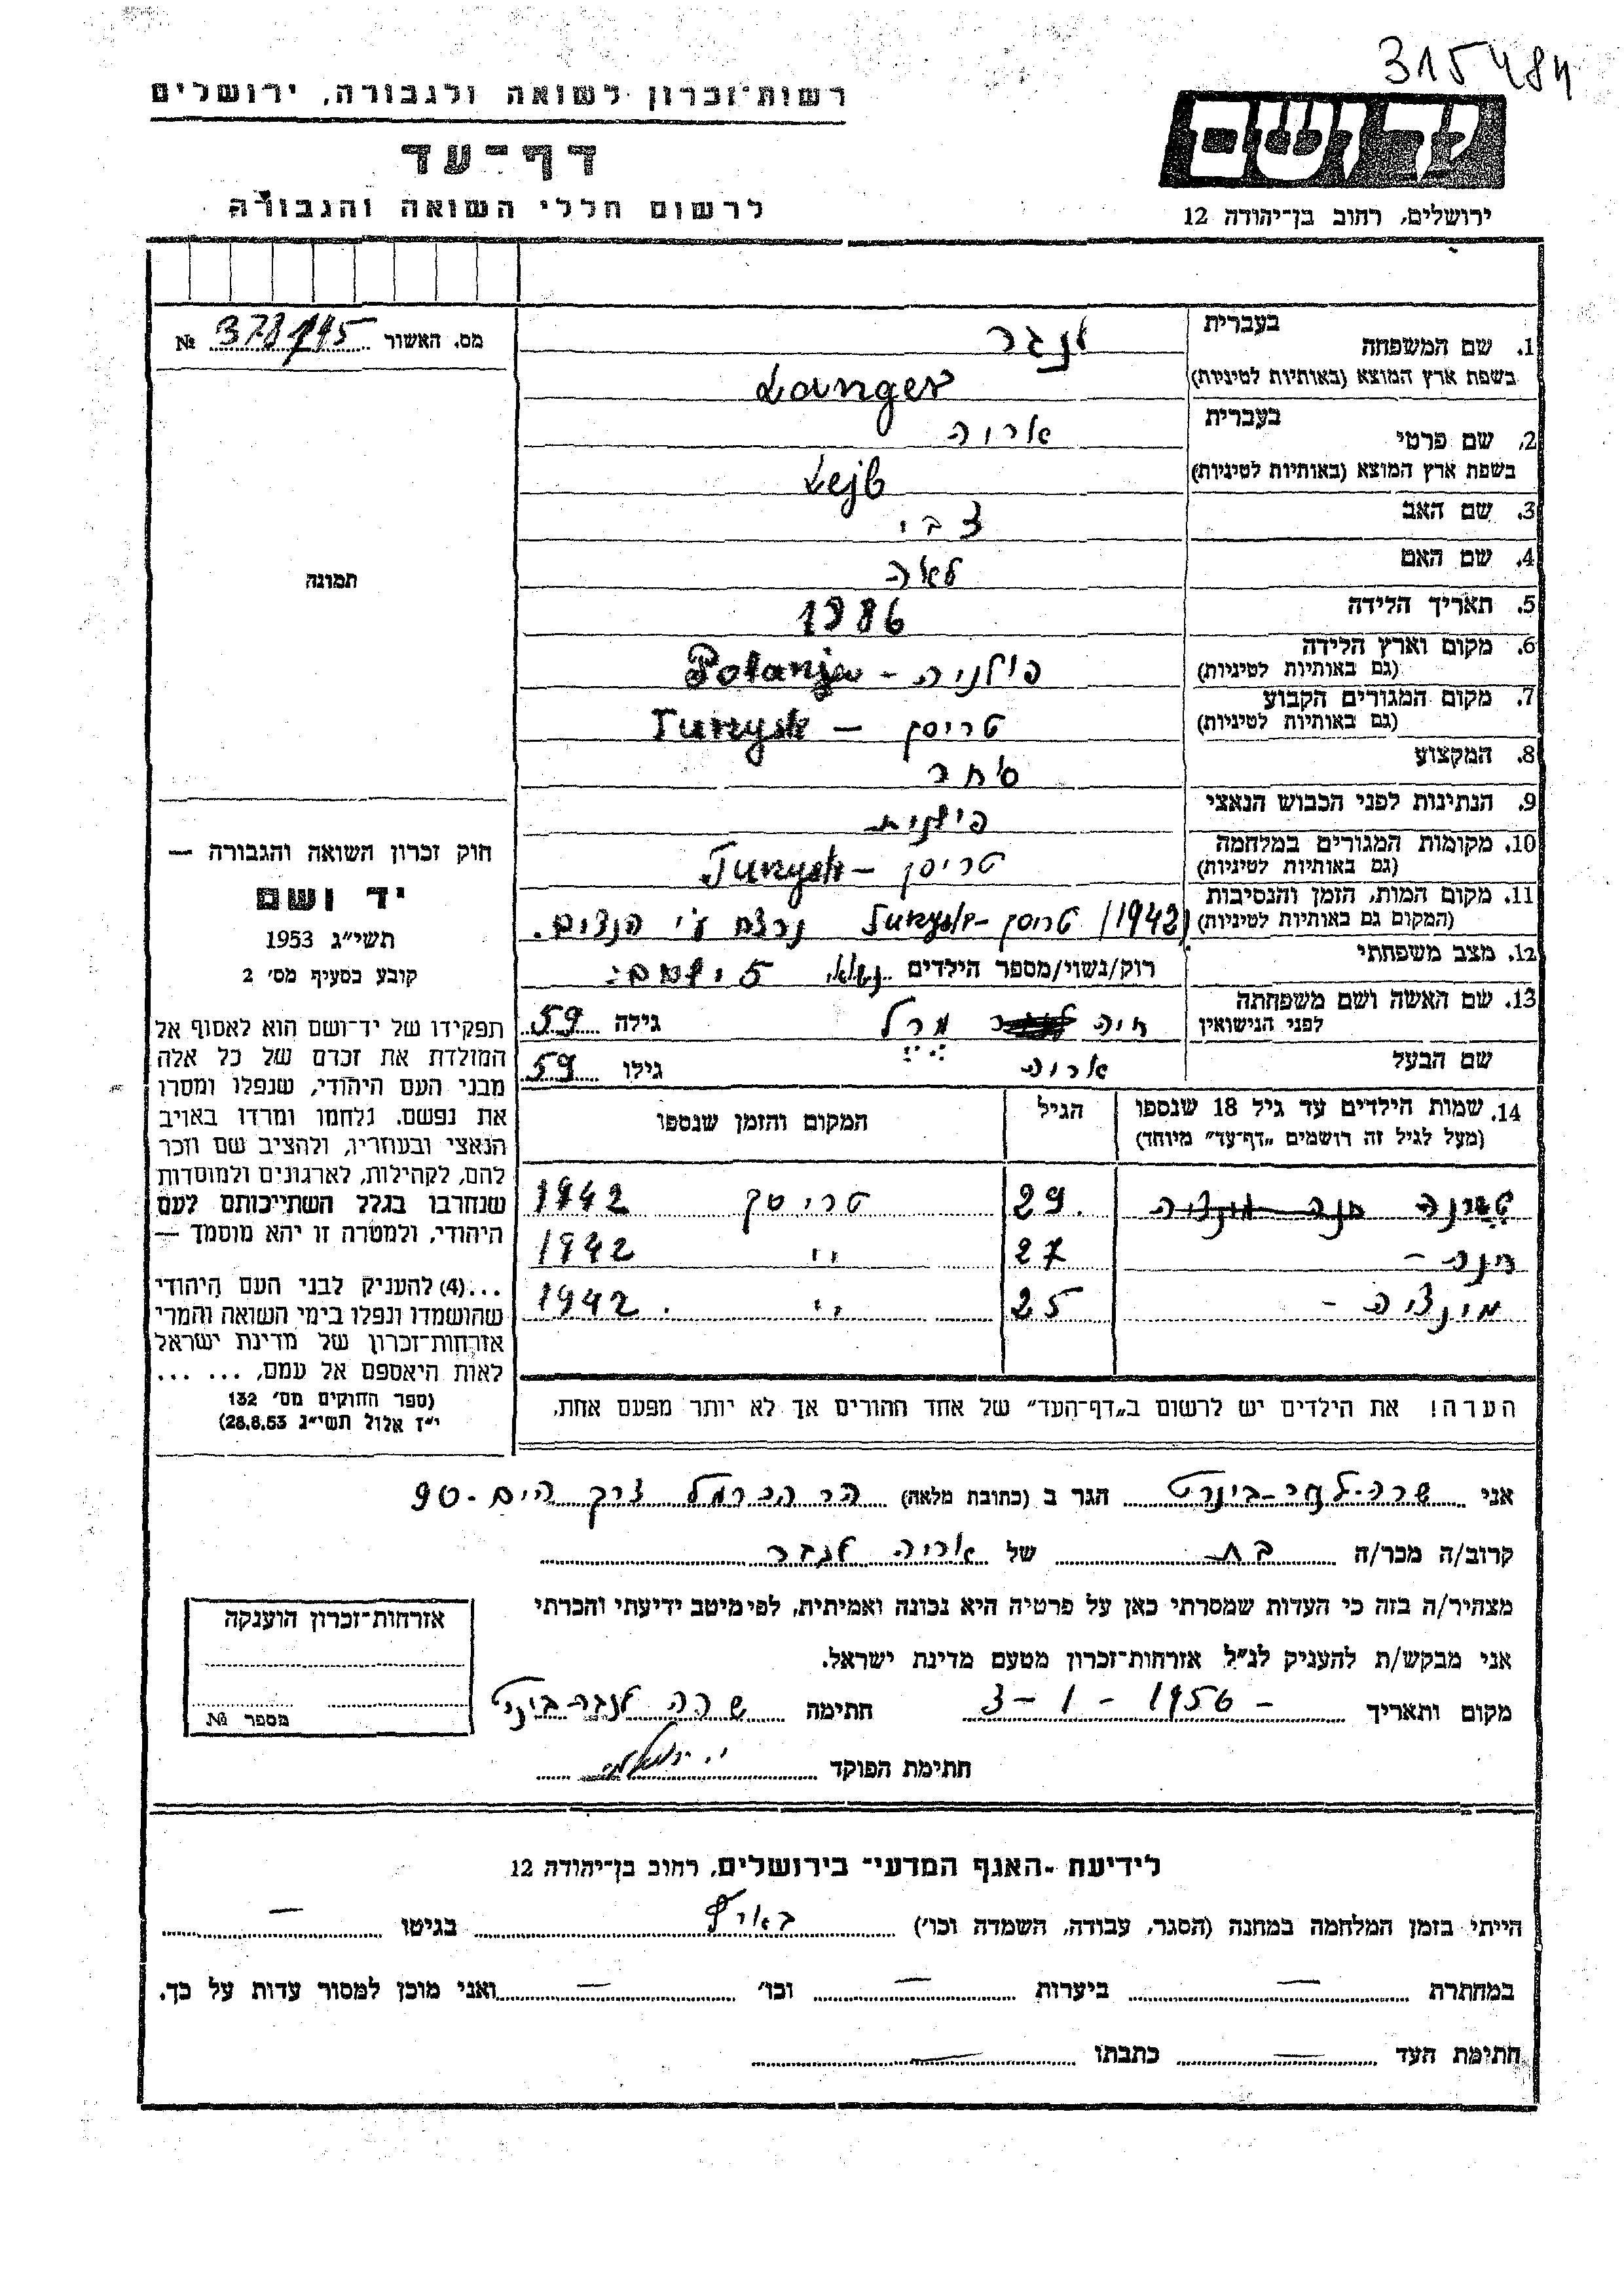 315484
רשות־זכרון לשואה ולגבורה, ירושלים
ידושם
דף־עד
לרשום חללי השואה והגבורה
ירושלים, רחוב בן־יהודה 12
מס. האשור № 378145
1. שם המשפחה בעברית לנגר
בשפת ארץ המוצא (באותיות לטיניות) Langer
2. שם פרטי בעברית אריה
בשפת ארץ המוצא (באותיות לטיניות) Lejb
3. שם האב צבי
4. שם האם לאה
5. תאריך הלידה
6. מקום וארץ הלידה פולניה -
(גם באותיות לטיניות)
7. מקום המגורים הקבוע טריסק — Turzysk
(גם באותיות לטיניות)
8. המקצוע סוחר
9. הנתינות לפני הכבוש הנאצי פולנית
10. מקומות המגורים במלחמה טריסק — Turzysk
(גם באותיות לטיניות)
11. מקום המות, הזמן והנסיבות (1942) טריסק - Turzysk נרצח ע"י הנצים.
(המקום גם באותיות לטיניות)
12. מצב משפחתי רוק/נשוי/מספר הילדים נשוי 5 ילדים
13. שם האשה ושם משפחתה חיה מרל גילה 59
לפני הנישואין
שם הבעל אריה גילו 59
תמונה
חוק זכרון השואה והגבורה —
יד ושם
תשי"ג 1953
קובע בסעיף מס' 2
תפקידו של יד־ושם הוא לאסוף אל
המולדת את זכרם של כל אלה
מבני העם היהודי, שנפלו ומסרו
את נפשם, נלחמו ומרדו באויב
הנאצי ובעוזריו, ולהציב שם וזכר
להם, לקהילות, לארגונים ולמוסדות
שנחרבו בגלל השתייכותם לעם
היהודי, ולמטרה זו יהא מוסמך —
...(4) להעניק לבני העם היהודי
שהושמדו ונפלו בימי השואה והמרי
אזרחות־זכרון של מדינת ישראל
לאות היאספם אל עמם, ... ...
(ספר החוקים מס' 132
י"ז אלול תשי"ג 28.8.53)
14. שמות הילדים עד גיל 18 שנספו הגיל המקום והזמן שנספו
(מעל לגיל זה רושמים „דף־עד" מיוחד)
29 טריסק 1942
27 " 1942
25 " 1942
הערה! את הילדים יש לרשום ב„דף־העד" של אחד ההורים אך לא יותר מפעם אחת.
אני שרה הגר ב (כתובת מלאה) הר הכרמל דרך הים - 90
קרוב/ה מכר/ה בת של אריה לנגר
מצהיר/ה בזה כי העדות שמסרתי כאן על פרטיה היא נכונה ואמיתית, לפי מיטב ידיעתי והכרתי
אני מבקש/ת להעניק לנ"ל אזרחות־זכרון מטעם מדינת ישראל.
מקום ותאריך 3 - 1 - 1956 - חתימה שרה לנגר
חתימת הפוקד
אזרחות־זכרון הוענקה
מספר №
לידיעת -האגף המדעי־ בירושלים, רחוב בן־יהודה 12
הייתי בזמן המלחמה במחנה (הסגר, עבודה, השמדה וכו') בארץ בגיטו —
במחתרת — ביערות — וכו' — ואני מוכן למסור עדות על כך.
חתימת העד — כתבתו —